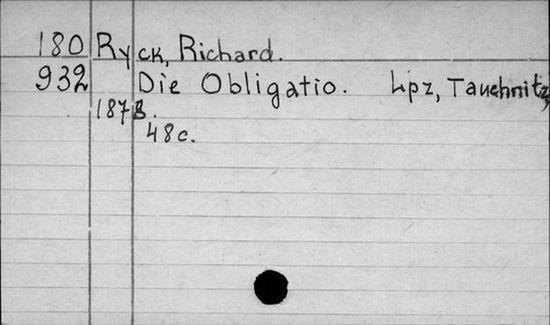 180 Ryck, Richard.
932 Die Obligatio. Lpz, Tauchnitz,
1878.
48c.